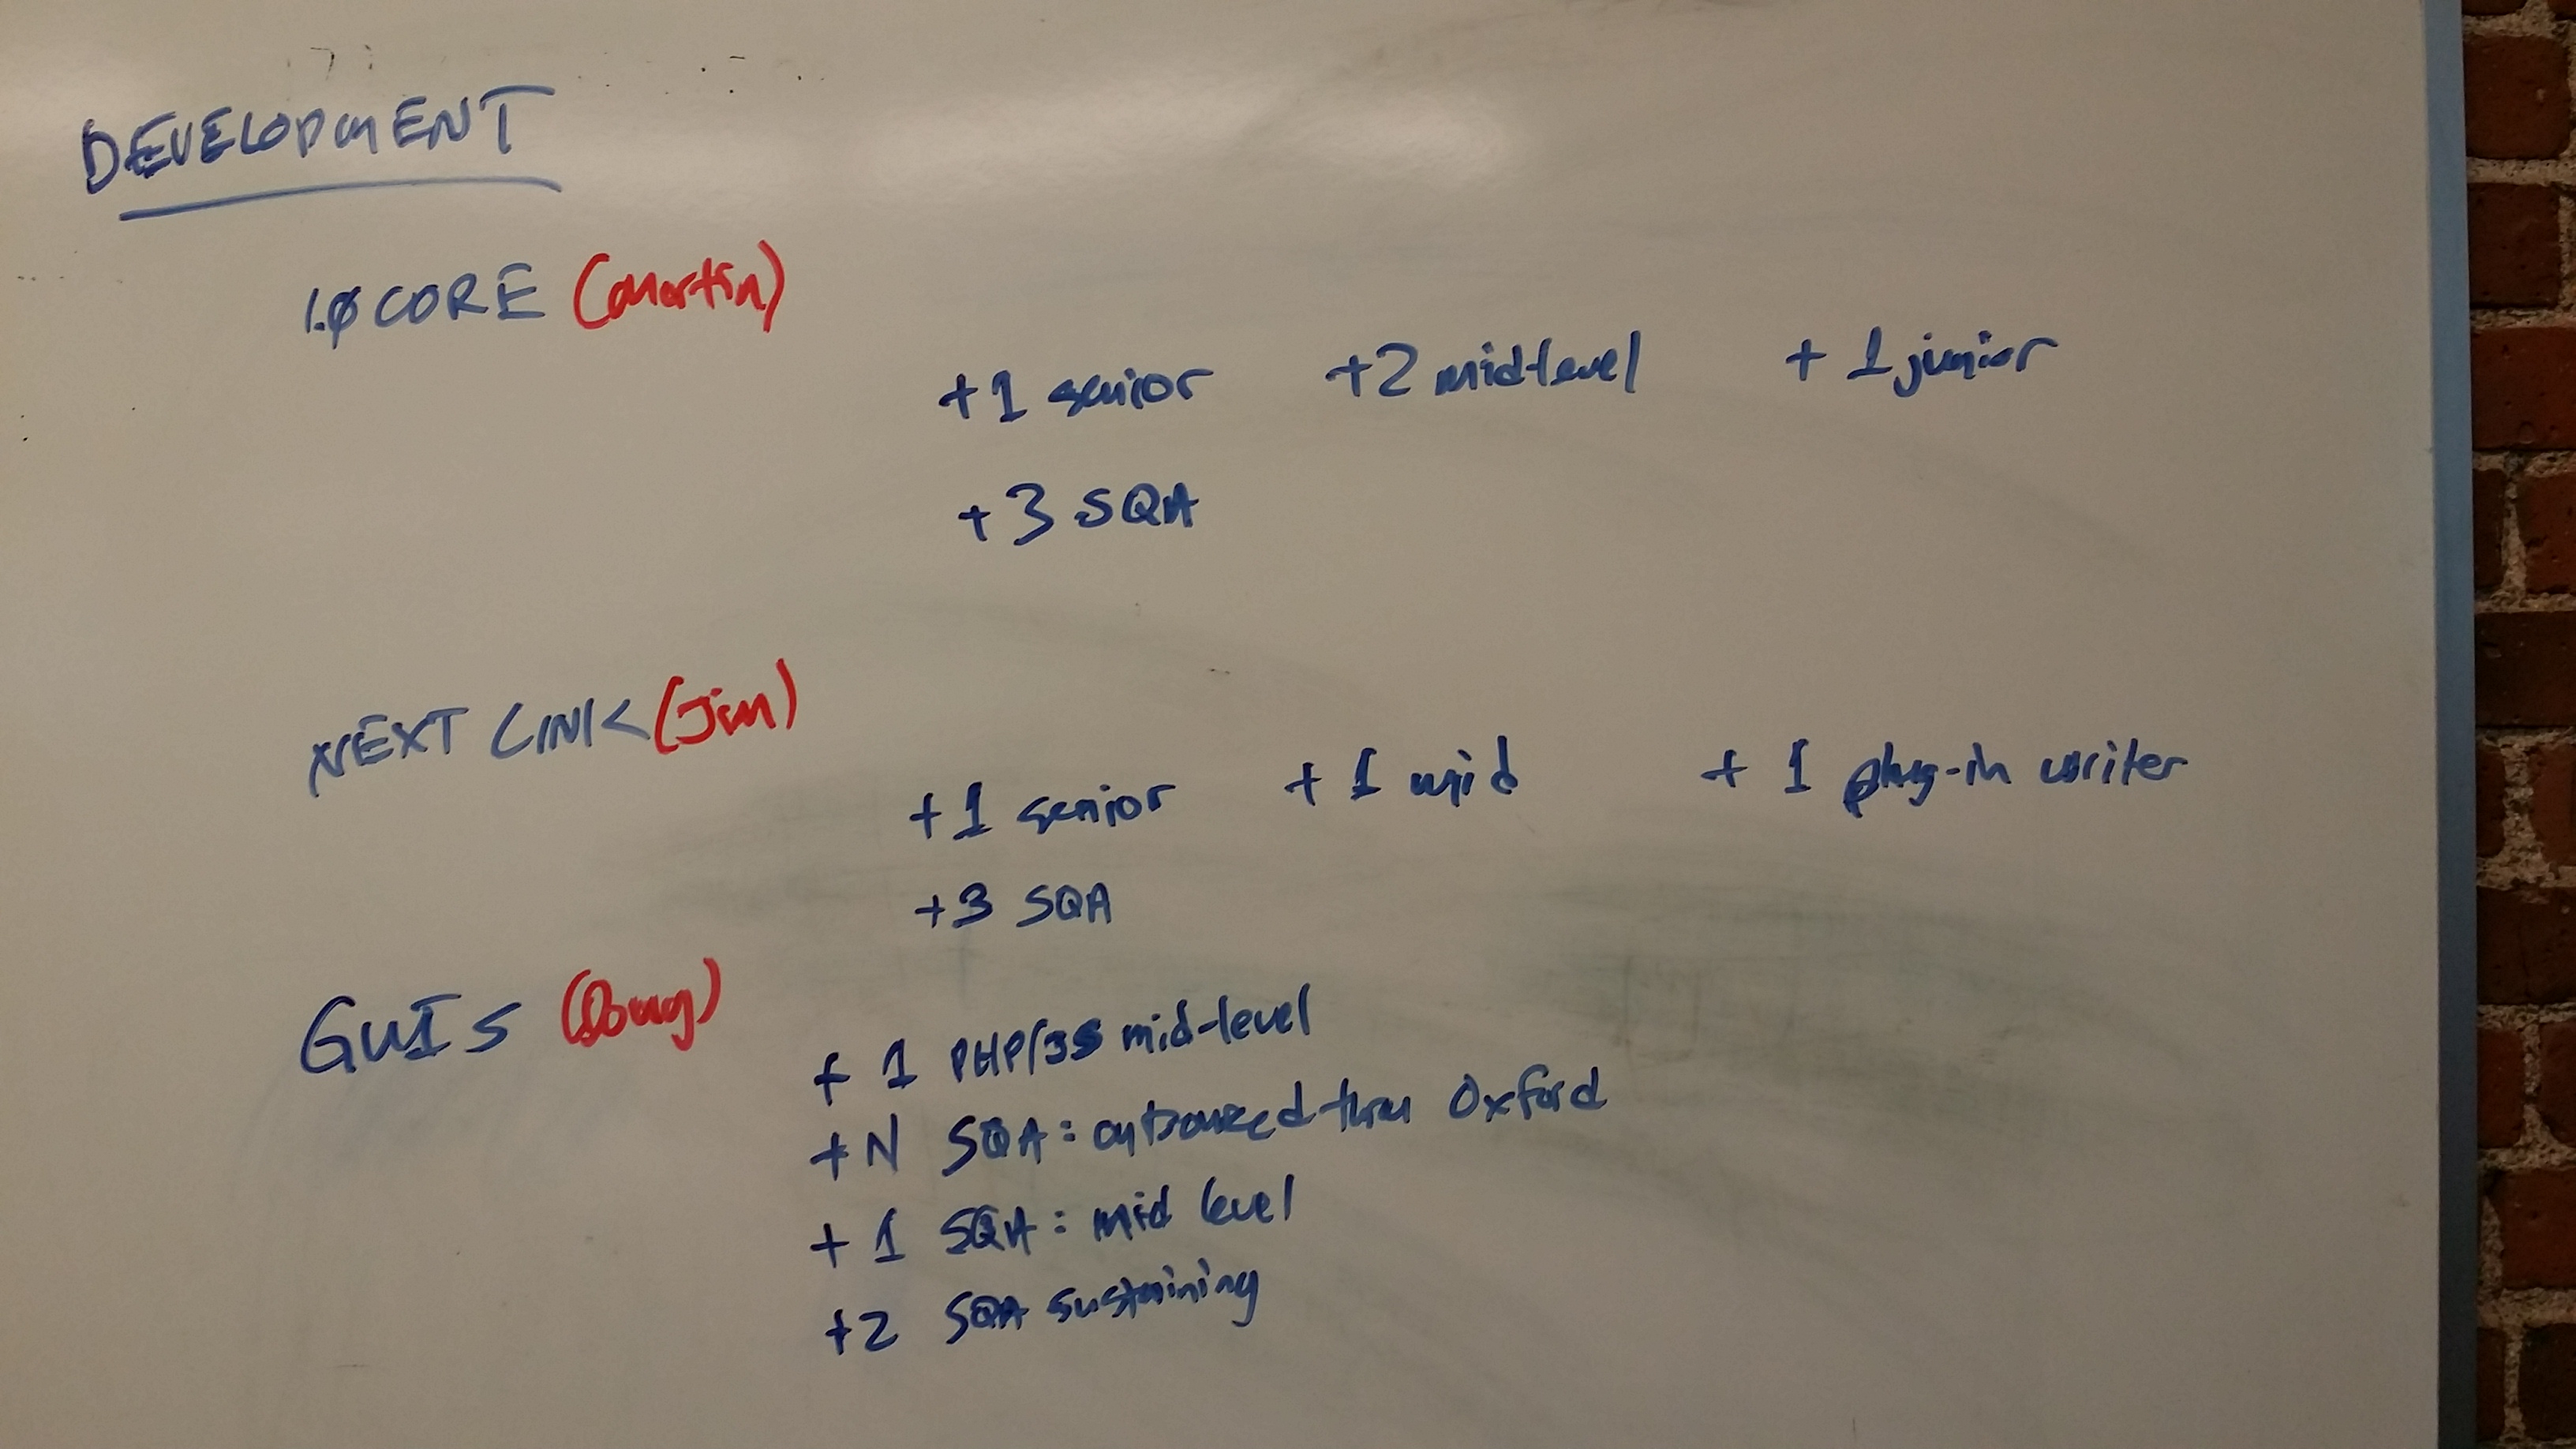 DEVELOPMENT
1.0 CORE (Martin)
+1 senior +2 midlevel +1 junior
+3 SQA
NEXT LINK (Jim)
+1 senior +1 mid +1 plug-in writer
+3 SQA
GUIs (Doug)
+1 PHP/JS mid-level
+N SQA: outsourced thru Oxford
+1 SQA: mid level
+2 SQA sustaining